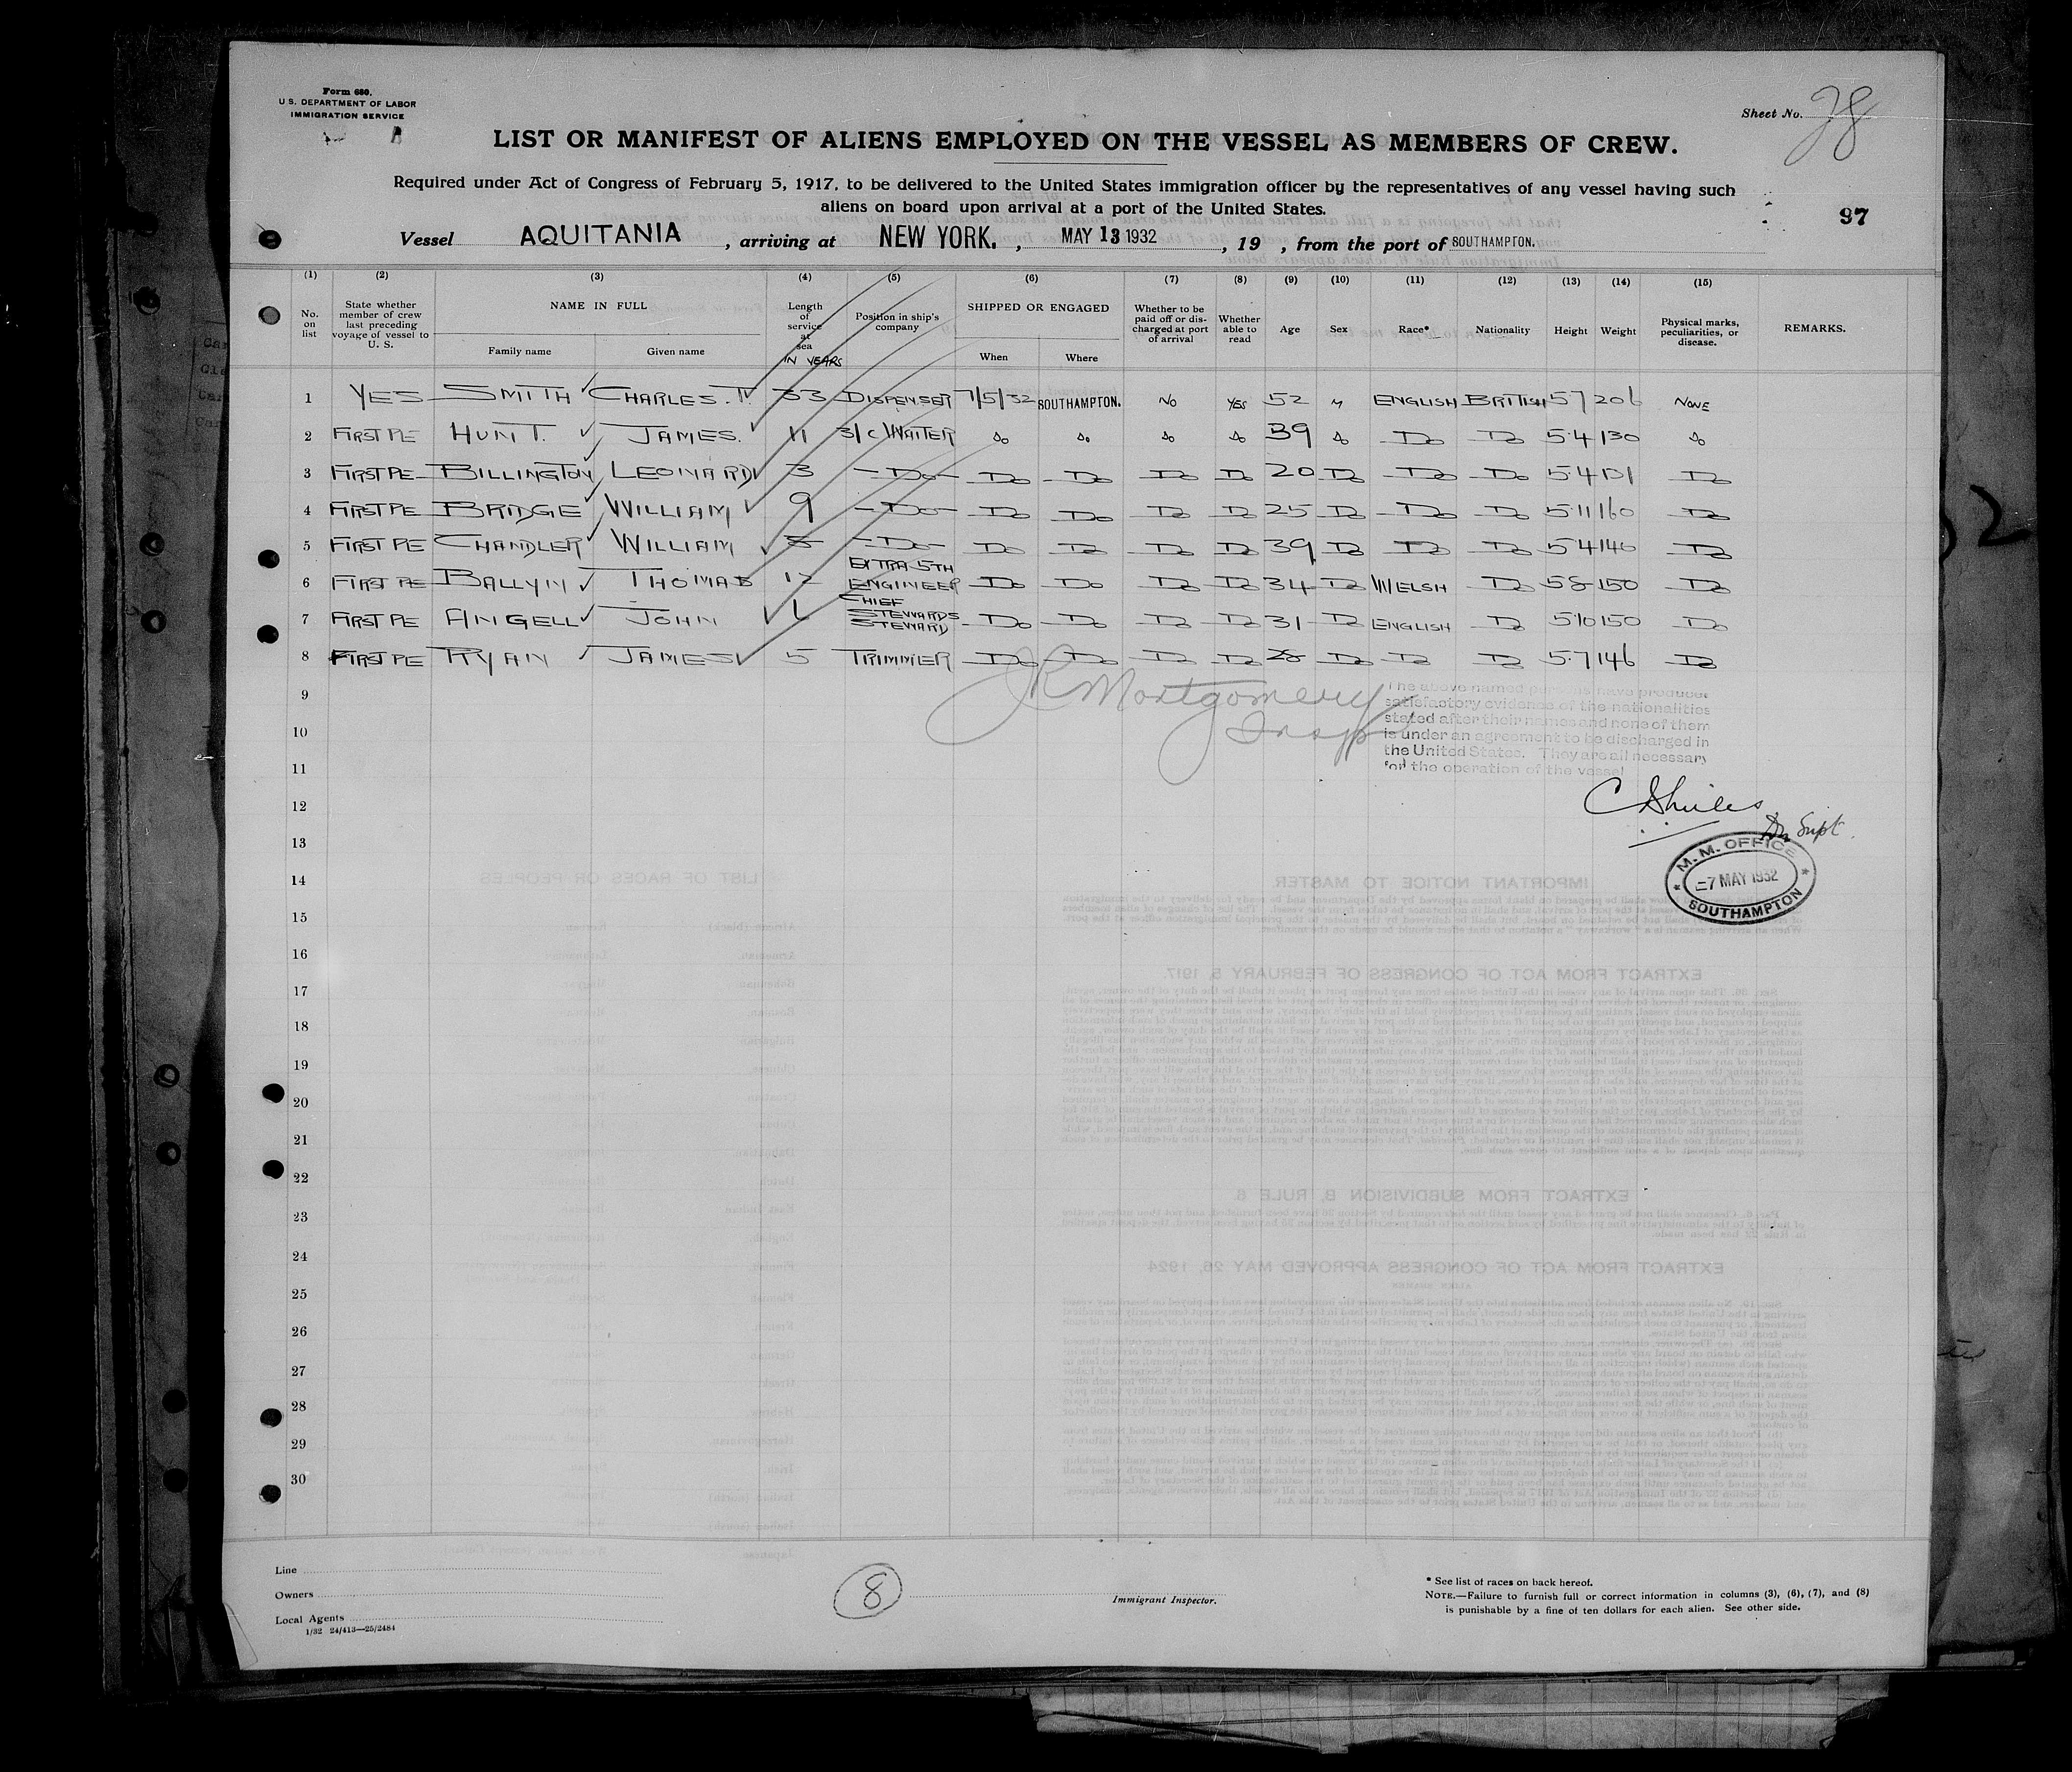 Form 680.
U. S. DEPARTMENT OF LABOR
IMMIGRATION SERVICE
Sheet No. 28
LIST OR MANIFEST OF ALIENS EMPLOYED ON THE VESSEL AS MEMBERS OF CREW.
Required under Act of Congress of February 5, 1917, to be delivered to the United States immigration officer by the representatives of any vessel having such
aliens on board upon arrival at a port of the United States.
97
Vessel AQUITANIA , arriving at NEW YORK. , MAY 13 1932 , 19 , from the port of SOUTHAMPTON.
(1) (2) (3) (4) (5) (6) (7) (8) (9) (10) (11) (12) (13) (14) (15)
No. on list State whether member of crew last preceding voyage of vessel to U. S. NAME IN FULL Family name Given name Length of service at sea IN YEARS Position in ship's company SHIPPED OR ENGAGED When Where Whether to be paid off or discharged at port of arrival Whether able to read Age Sex Race* Nationality Height Weight Physical marks, peculiarities, or disease. REMARKS.
1 YES SMITH CHARLES. 33 DISPENSER 7/5/32 SOUTHAMPTON. NO YES 52 M ENGLISH BRITISH 5 7 206 NONE
2 FIRST PE HUNT. JAMES. 11 3/C WAITER Do Do Do Do 39 Do Do Do 5·4 130 Do
3 FIRST PE BILLINGTON LEONARD 3 -Do- Do Do Do Do 20 Do Do Do 5·4 131 Do
4 FIRST PE BRIDGE WILLIAM 9 -Do- Do Do Do Do 25 Do Do Do 5·11 160 Do
5 FIRST PE CHANDLER WILLIAM 8 -Do- Do Do Do Do 39 Do Do Do 5·4 140 Do
6 FIRST PE BALLYN THOMAS 12 EXTRA 5TH ENGINEER Do Do Do Do 34 Do WELSH Do 5 8 150 Do
7 FIRST PE ANGELL JOHN 6 CHIEF STEWARDS STEWARD Do Do Do Do 31 Do ENGLISH Do 5·10 150 Do
8 FIRST PE RYAN JAMES 5 TRIMMER Do Do Do Do 28 Do Do Do 5·7 146 Do
JR Montgomery
Insp
The above named persons have produced
satisfactory evidence of the nationalities
stated after their names and none of them
is under an agreement to be discharged in
the United States. They are all necessary
for the operation of the vessel
Supt.
M. M. OFFICE
-7 MAY 1932
SOUTHAMPTON
9
10
11
12
13
14
15
16
17
18
19
20
21
22
23
24
25
26
27
28
29
30
Line
Owners
Local Agents
1/32 24/413—25/2484
8
Immigrant Inspector.
* See list of races on back hereof.
NOTE.—Failure to furnish full or correct information in columns (3), (6), (7), and (8)
is punishable by a fine of ten dollars for each alien. See other side.